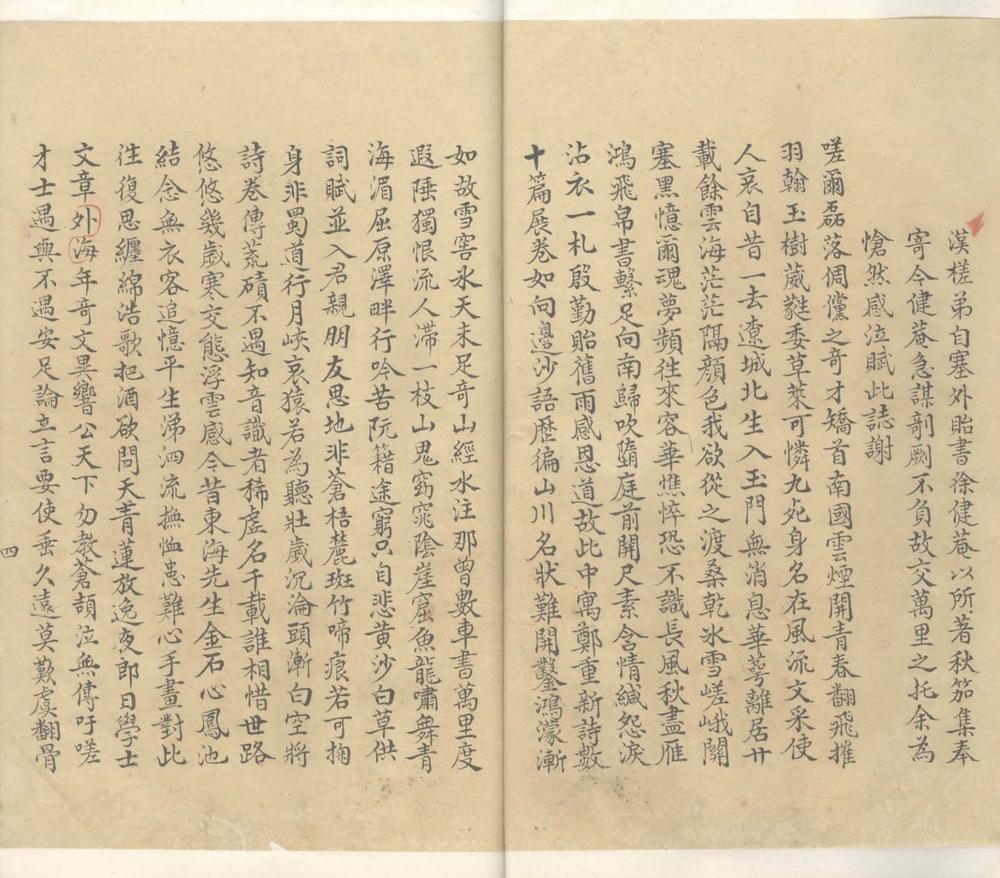 漢槎弟自塞外貽書徐健菴以所著秋笳集奉
寄今健菴急謀剞劂不負故交萬里之托余為
愴然感泣賦此誌謝
嗟爾磊落倜儻之奇才矯首南國雲煙開青春翻飛摧
羽翰玉樹葳蕤委草萊可憐九死身名在風流文采使
人哀自昔一去遼城北生入玉門無消息華萼離居廿
載餘雲海茫茫隔顏色我欲從之渡桑乾氷雪嵯峨關
塞黑憶爾魂夢頻往來容華憔悴恐不識長風秋盡雁
鴻飛帛書繫足向南歸吹墮庭前開尺素含情緘怨淚
沾衣一札殷勤貽舊雨感恩道故此中寓鄭重新詩數
十篇展卷如向邊沙語歷徧山川名狀難開鑿鴻濛漸
如故雪窖氷天未足奇山經水注那曾數車書萬里度
遐陲獨恨流人滯一枝山鬼窈窕陰崖窟魚龍嘯舞青
海湄屈原澤畔行吟苦阮籍途窮只自悲黃沙白草供
詞賦並入君親朋友思地非蒼梧麓斑竹啼痕若可掬
身非蜀道行月峽哀猿若為聽壯歲沉淪頭漸白空將
詩卷傳荒磧不遇知音識者稀虛名千載誰相惜世路
悠悠幾歲寒交態浮雲感今昔東海先生金石心鳳池
結念無衣客追憶平生涕泗流撫恤患難心手畫對此
徃復思纏綿浩歌把酒欲問天青蓮放逸夜郎日學士
文章外海年奇文異響公天下勿教蒼頡泣無傳吁嗟
才士遇與不遇安足論立言要使垂久遠莫歎虞翻骨
四